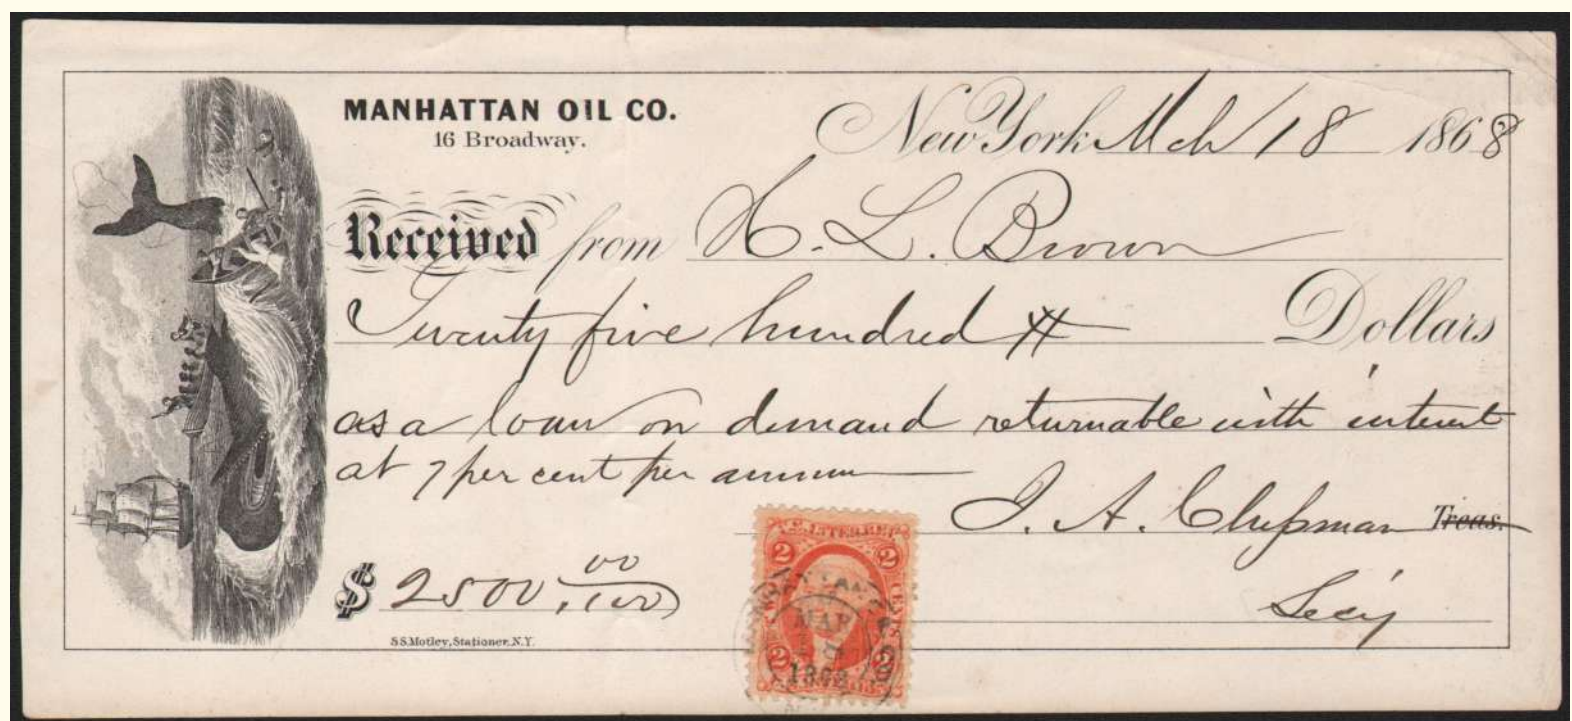 MANHATTAN OIL CO.
16 Broadway.
New York Mch 18 1868
Received from H. L. Brown
Twenty five hundred Dollars
as a loan on demand returnable with interest
at 7 per cent per annum
I. A. Chapman Treas.
Secy
$ 2500.00/100
S.S. Motley, Stationer, N.Y.
U.S. INTER. REV.
2 2
MAR
1868
2 2